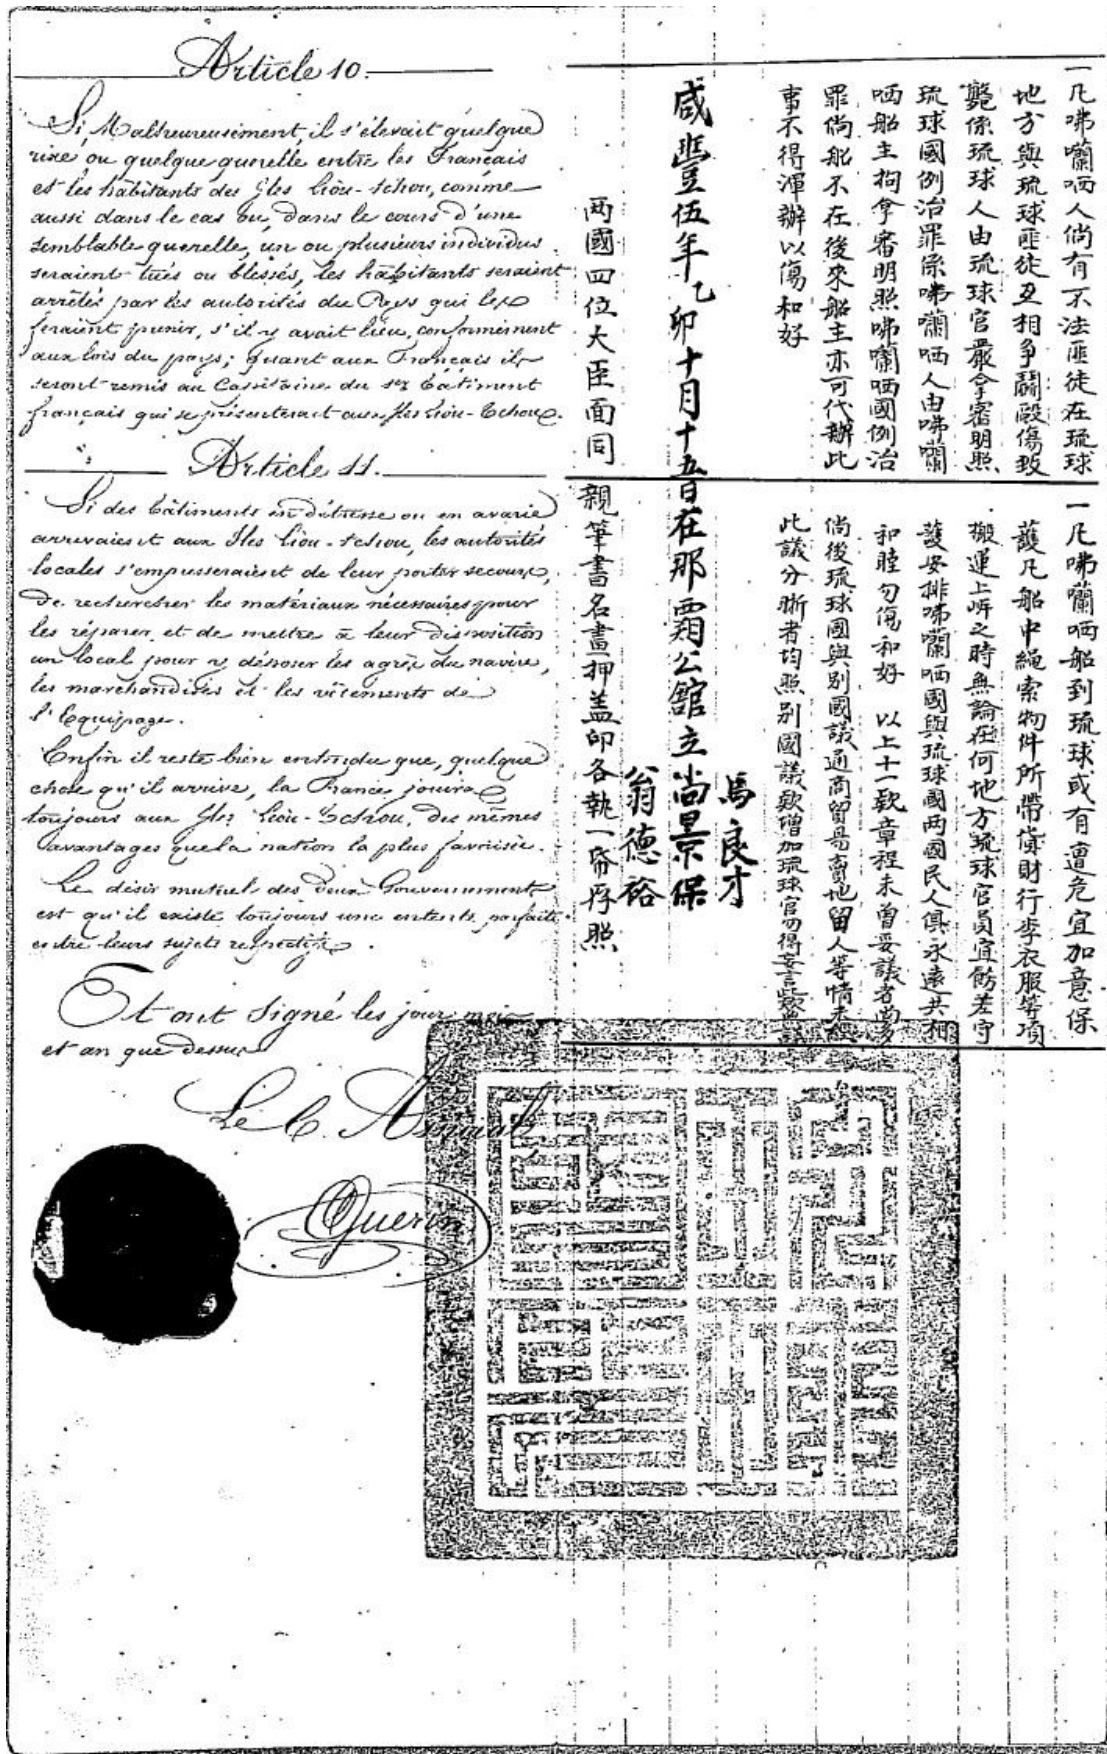 Article 10.
Si, Malheureusement, il s'élevait quelque
rixe ou quelque querelle entre les Français
et les habitants des Iles Liou-tchou, comme
aussi dans le cas ou, dans le cours d'une
semblable querelle, un ou plusieurs individus
seraient tués ou blessés, les habitants seraient
arrêtés par les autorités du Pays qui les
feraient punir, s'il y avait lieu, conformément
aux lois du pays; Quant aux Français ils
seront remis au Capitaine du 1er bâtiment
français qui se présenterait aux Iles Liou-tchou.
Article 11.
Si des bâtiments en détresse ou en avarie
arrivaient aux Iles Liou-tchou, les autorités
locales s'empresseraient de leur porter secours,
De rechercher les matériaux nécessaires pour
les réparer, et de mettre à leur disposition
un local pour y déposer les agrès du navire,
les marchandises et les vêtements de
l'Equipage.
Enfin il reste bien entendu que, quelque
chose qu'il arrive, la France jouira
toujours aux Iles Liou-tchou, des mêmes
avantages que la nation la plus favorisée.
Le désir mutuel des deux Gouvernements
est qu'il existe toujours une entente parfaite
entre leurs sujets respectifs.
Et ont signé les jour, mois
et an que dessus
Le C. Amiral
Guerin
一凡咈囒哂人倘有不法匪徒在琉球
地方與琉球匪徒互相争鬭毆傷致
斃係琉球人由琉球官嚴拿審明照
琉球國例治罪係咈囒哂人由咈囒
哂船主拘拿審明照咈囒哂國例治
罪倘船不在後來船主亦可代辦此
事不得渾辦以傷和好
一凡咈囒哂船到琉球或有遭危宜加意保
護凡船中繩索物件所帶貨財行李衣服等項
搬運上岸之時無論在何地方琉球官員宜飭差守
護安排咈囒哂國與琉球國两國民人俱永遠共相
和睦勿傷和好 以上十一欵章程未曾妥議者
倘後琉球國與别國議通商貿易賣地留人等情
此議分晰者均照别國議欵增加琉球官勿得妄言
咸豐伍年乙卯十月十五日在那霸公館立
馬良才
尚景保
翁德裕
两國四位大臣面同親筆書名畫押盖印各執一帋存照